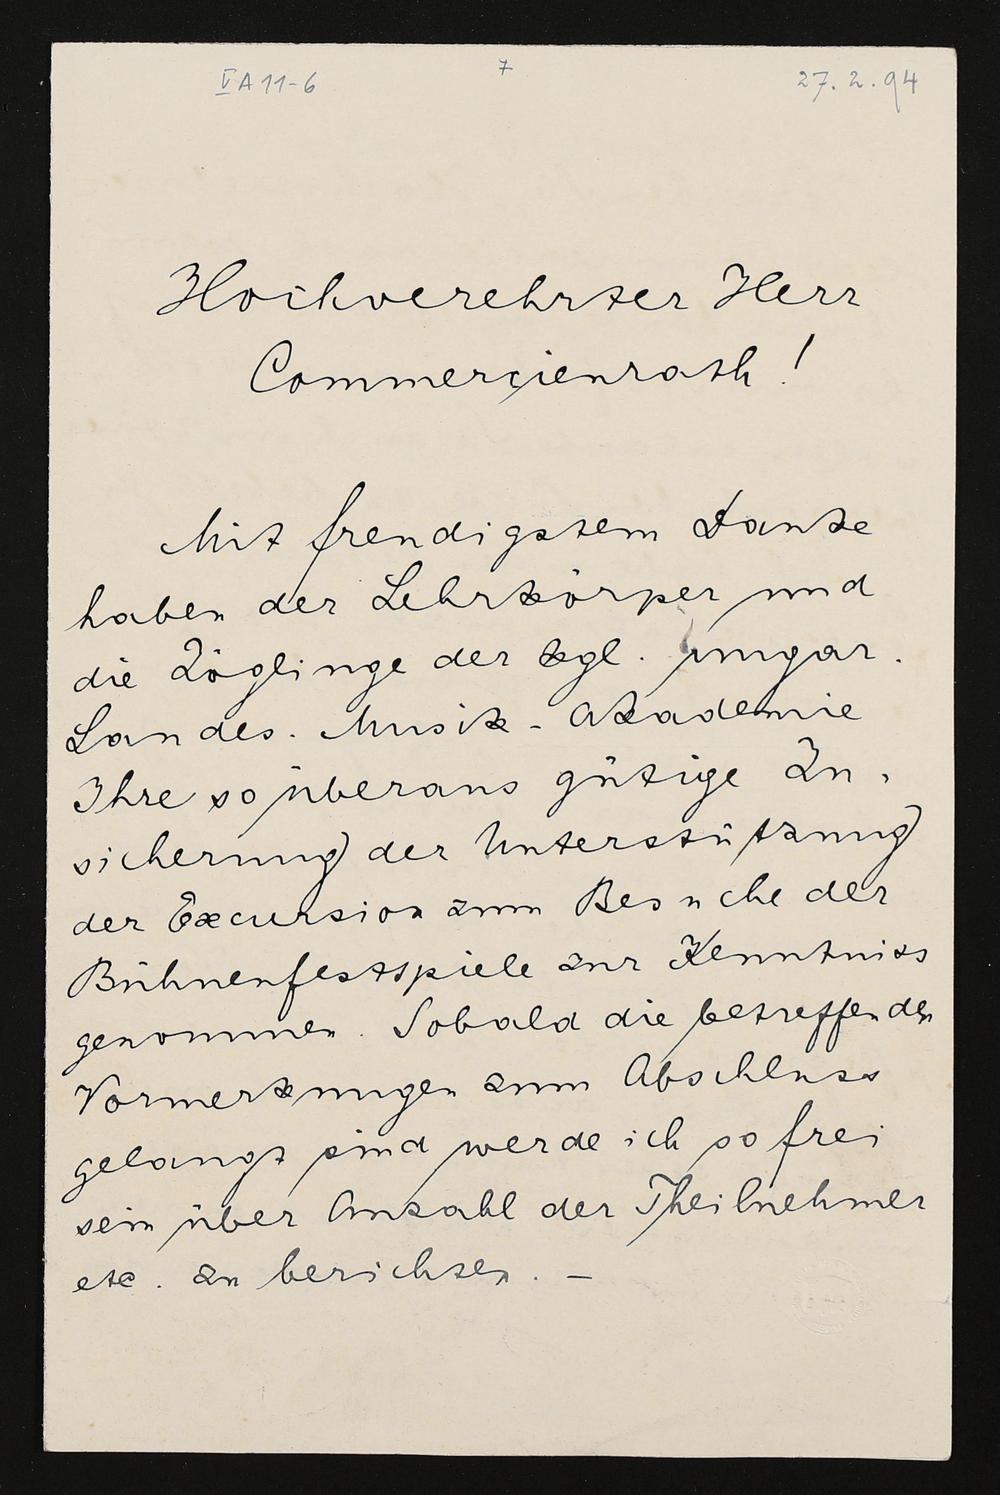 VA11-6
7
27.2.94
Hochverehrter Herr
Commerçienrath!
Mit freudigstem Danke
haben der Lehrkörper und
die Zöglinge der kgl. ungar.
Landes. Musik-Akademie
Ihre so überaus gütige Zu-
sicherung der Unterstützung
der Excursion zum Besuche der
Bühnenfestspiele zur Kenntniss
genommen. Sobald die betreffenden
Vormerkungen zum Abschluss
gelangt sind werde ich so frei
sein über Anzahl der Theilnehmer
etc. zu berichten. —